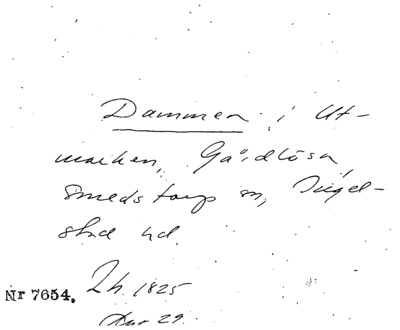 Dammen i Ut-
marken, Gårdlösa,
Smedstorps sn, Ingel-
stad hd.
Lh. 1825
Nr 7654.
29